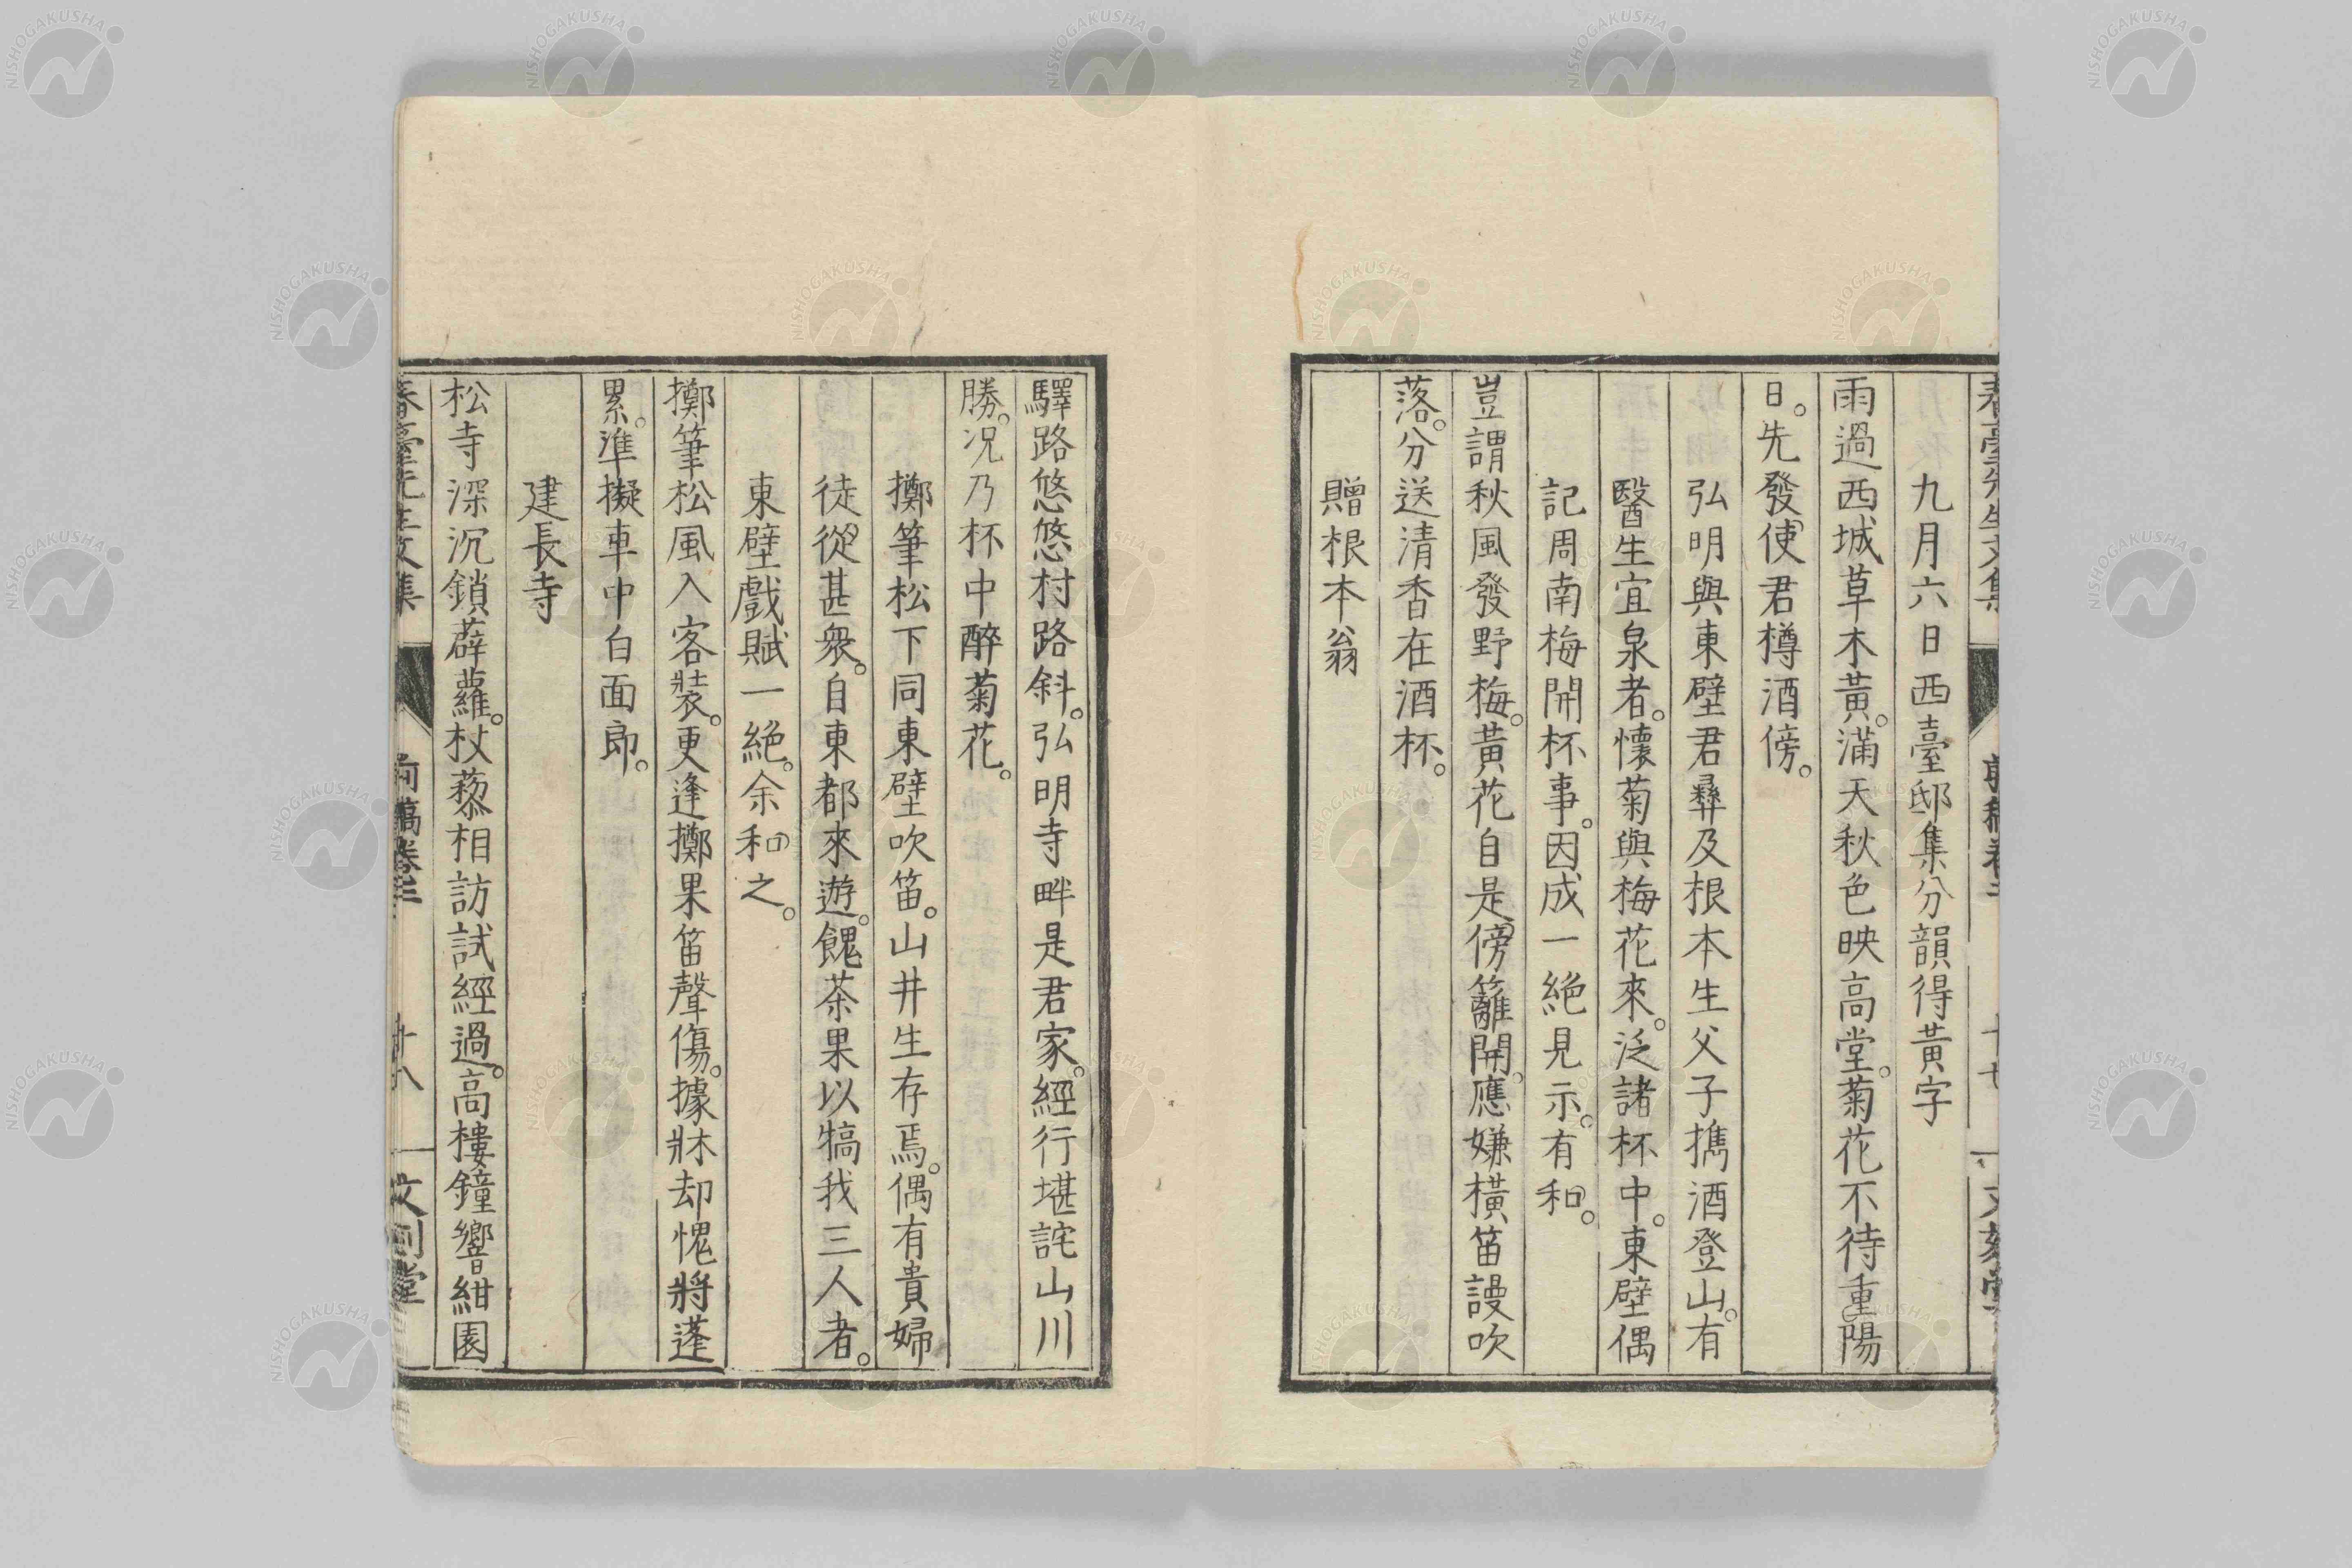 九月六日西臺邸集分韻得黃字
雨過西城草木黃。滿天秋色映高堂。菊花不待重陽
日。先發使君樽酒傍。
弘明與東壁君彝及根本生父子擕酒登山。有
醫生宜泉者。懷菊與梅花來。泛諸杯中。東壁偶
記周南梅開杯事。因成一絕見示。有和。
豈謂秋風發野梅。黃花自是傍籬開。應嫌橫笛謾吹
落。分送清香在酒杯。
贈根本翁
驛路悠悠村路斜。弘明寺畔是君家。經行堪詫山川
勝。況乃杯中醉菊花。
擲筆松下同東壁吹笛。山井生存焉。偶有貴婦
徒從甚衆。自東都來遊。餽茶果以犒我三人者。
東壁戲賦一絕。余和之。
擲筆松風入客裝。更逢擲果笛聲傷。據牀却愧將蓬
累。準擬車中白面郎。
建長寺
松寺深沉鎖薜蘿。杖藜相訪試經過。高樓鐘響紺園
春臺先生文集 前稿卷三 十八 文刻堂